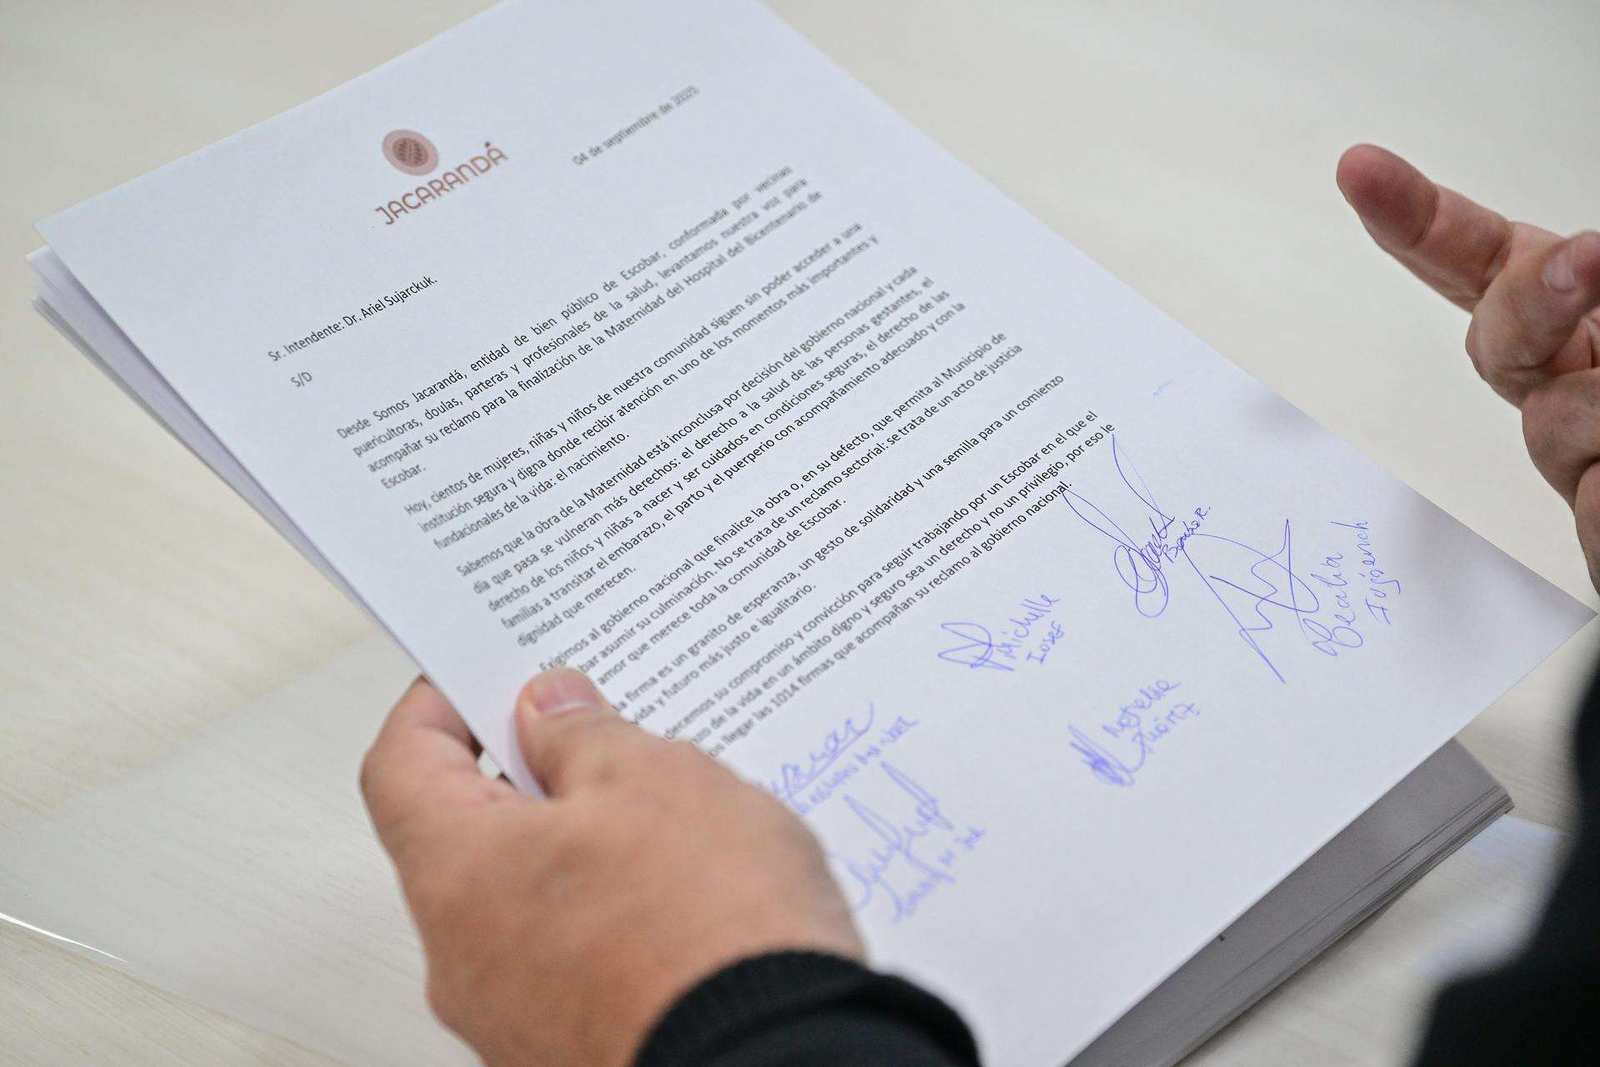 JACARANDÁ
04 de septiembre de 2025
Sr. Intendente: Dr. Ariel Sujarckuk.
S/D
Desde Somos Jacarandá, entidad de bien público de Escobar, conformada por vecinas
puericultoras, doulas, parteras y profesionales de la salud, levantamos nuestra voz para
acompañar su reclamo para la finalización de la Maternidad del Hospital del Bicentenario de
Escobar.
Hoy, cientos de mujeres, niñas y niños de nuestra comunidad siguen sin poder acceder a una
institución segura y digna donde recibir atención en uno de los momentos más importantes y
fundacionales de la vida: el nacimiento.
Sabemos que la obra de la Maternidad está inconclusa por decisión del gobierno nacional y cada
día que pasa se vulneran más derechos: el derecho a la salud de las personas gestantes, el
derecho de los niños y niñas a nacer y ser cuidados en condiciones seguras, el derecho de las
familias a transitar el embarazo, el parto y el puerperio con acompañamiento adecuado y con la
dignidad que merecen.
Exigimos al gobierno nacional que finalice la obra o, en su defecto, que permita al Municipio de
bar asumir su culminación. No se trata de un reclamo sectorial: se trata de un acto de justicia
amor que merece toda la comunidad de Escobar.
a firma es un granito de esperanza, un gesto de solidaridad y una semilla para un comienzo
vida y futuro más justo e igualitario.
decemos su compromiso y convicción para seguir trabajando por un Escobar en el que el
zo de la vida en un ámbito digno y seguro sea un derecho y no un privilegio, por eso le
os llegar las 1014 firmas que acompañan su reclamo al gobierno nacional.
Michelle
Iosef
Cecilia
Natalia